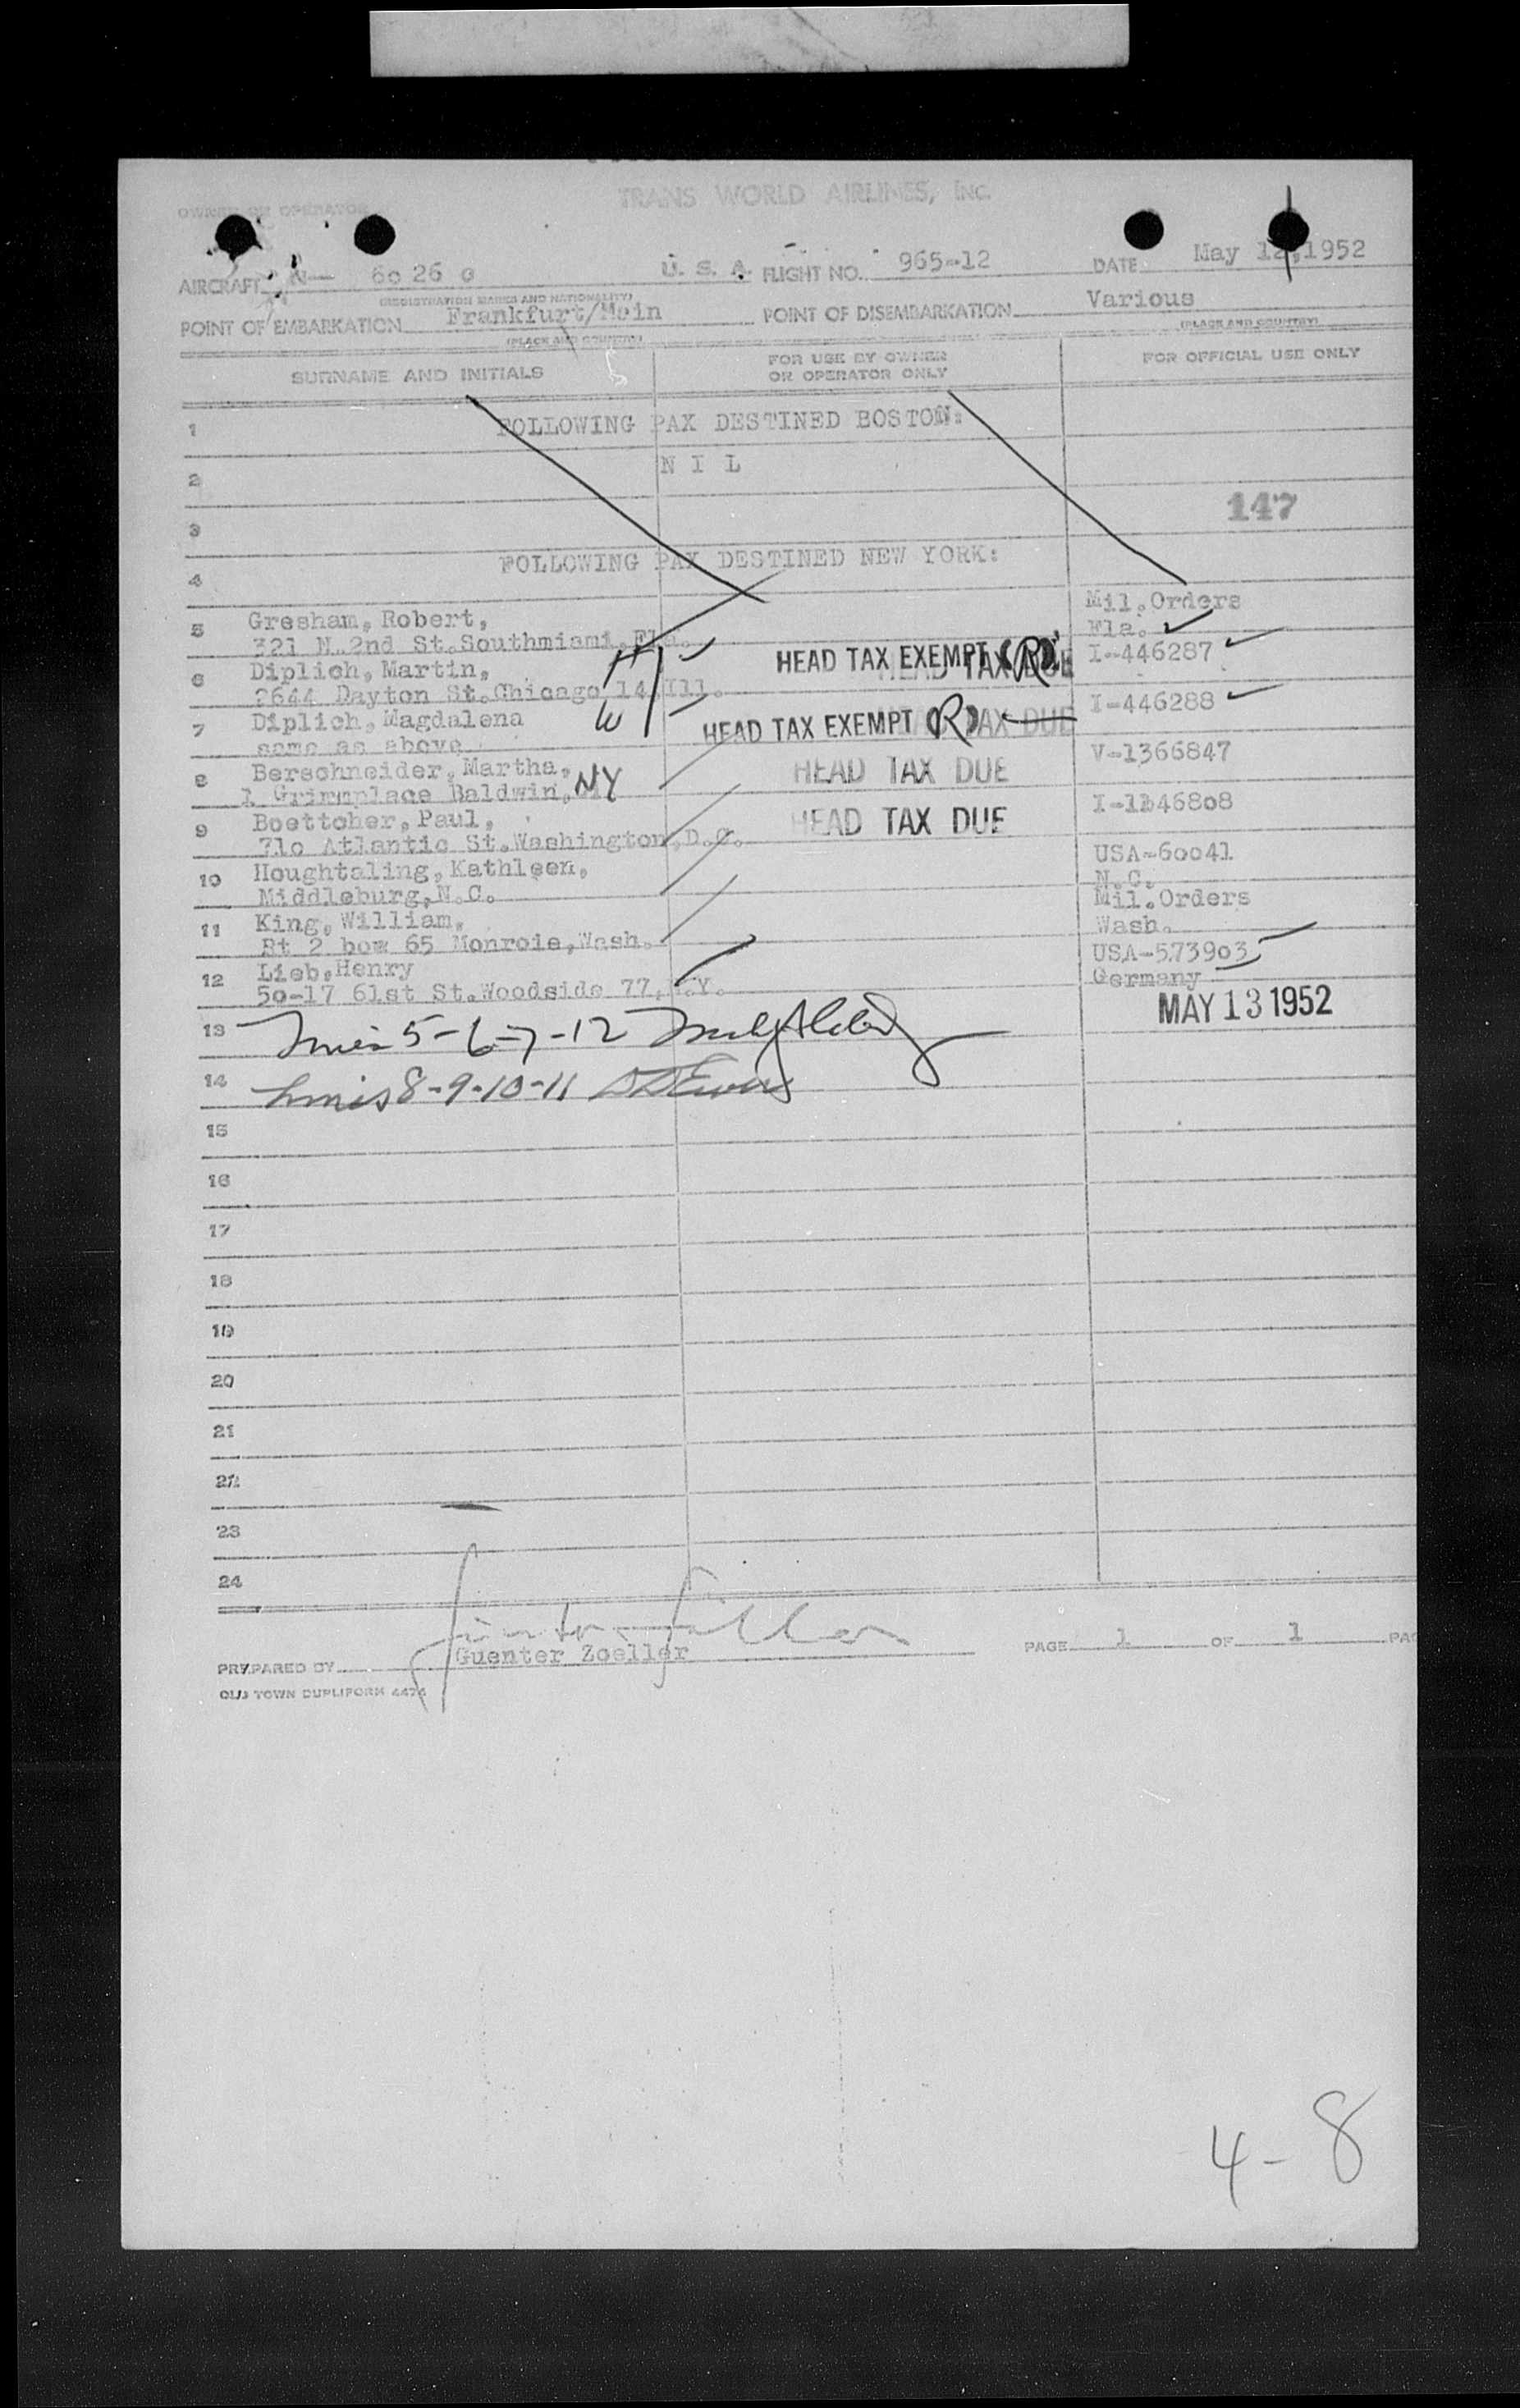 TRANS WORLD AIRLINES, INC.
OWNER OR OPERATOR
AIRCRAFT N- 6o 26 c U. S. A. FLIGHT NO. 965-12 DATE May 12, 1952
(REGISTRATION MARKS AND NATIONALITY)
POINT OF EMBARKATION Frankfurt/Main POINT OF DISEMBARKATION Various
(PLACE AND COUNTRY) (PLACE AND COUNTRY)
SURNAME AND INITIALS FOR USE BY OWNER OR OPERATOR ONLY FOR OFFICIAL USE ONLY
1 FOLLOWING PAX DESTINED BOSTON:
2 N I L
147
3
FOLLOWING PAX DESTINED NEW YORK:
4
Mil.Orders
5 Gresham, Robert, Fla.
321 N.2nd St.Southmiami,Fla.
6 Diplich, Martin, HEAD TAX EXEMPT (R) HEAD TAX DUE I-446287
2644 Dayton St.Chicago 14,Ill.
7 Diplich, Magdalena HEAD TAX EXEMPT (R) HEAD TAX DUE I-446288
same as above
8 Berschneider, Martha, HEAD TAX DUE V-1366847
1 Grimmplace Baldwin, NY
9 Boettcher, Paul, HEAD TAX DUE I-1146808
71o Atlantic St.Washington,D.C.
10 Houghtaling, Kathleen, USA-60041
Middleburg,N.C. N.C.
11 King, William, Mil.Orders
Rt 2 box 65 Monroie,Wash. Wash.
12 Lieb,Henry USA-573903
50-17 61st St.Woodside 77,N.Y. Germany
MAY 13 1952
13 5-6-7-12
14 8-9-10-11
15
16
17
18
19
20
21
22
23
24
PREPARED BY Guenter Zoeller PAGE 1 OF 1 PAG
OLD TOWN DUPLIFORM 4474
4-8